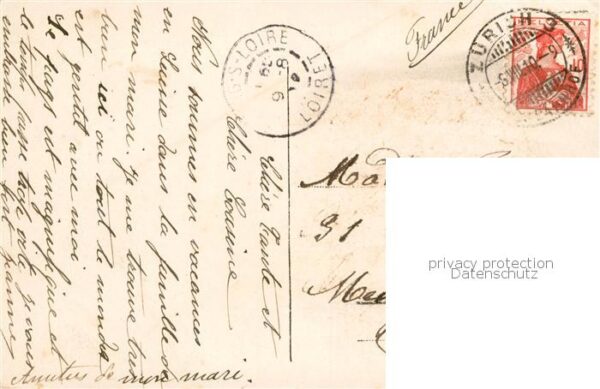 Chère Tante et
Chère Cousine
Nous sommes en vacances
en Suisse dans la famille de
mon mari. Je me trouve très
bien ici où tout le monde
est gentil avec moi
Le pays est magnifique et
le temps passe trop vite je vous
embrasse bien fort
Amitiés de mon mari.
France
ZÜRICH 3
HELVETIA
LOIRET
S-LOIRE
8-9
Ma
31
privacy protection
Datenschutz